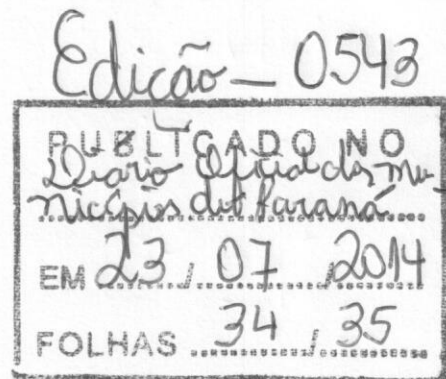 Edição - 0543
PUBLICADO NO
Diario Oficial dos Mu-
nicípios do Paraná
EM 23 / 07 / 2014
FOLHAS 34 / 35